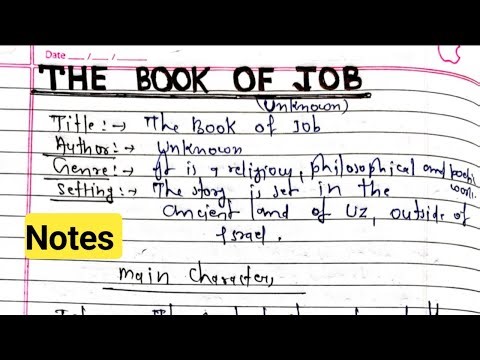 Date __/__/__
THE BOOK OF JOB
(Unknown)
Title:→ The Book of Job
Author:→ Unknown
Genre:→ It is a religious, philosophical and poetic work.
Setting:→ The story is set in the
ancient land of Uz, outside of
Israel.
Notes
Main Characters